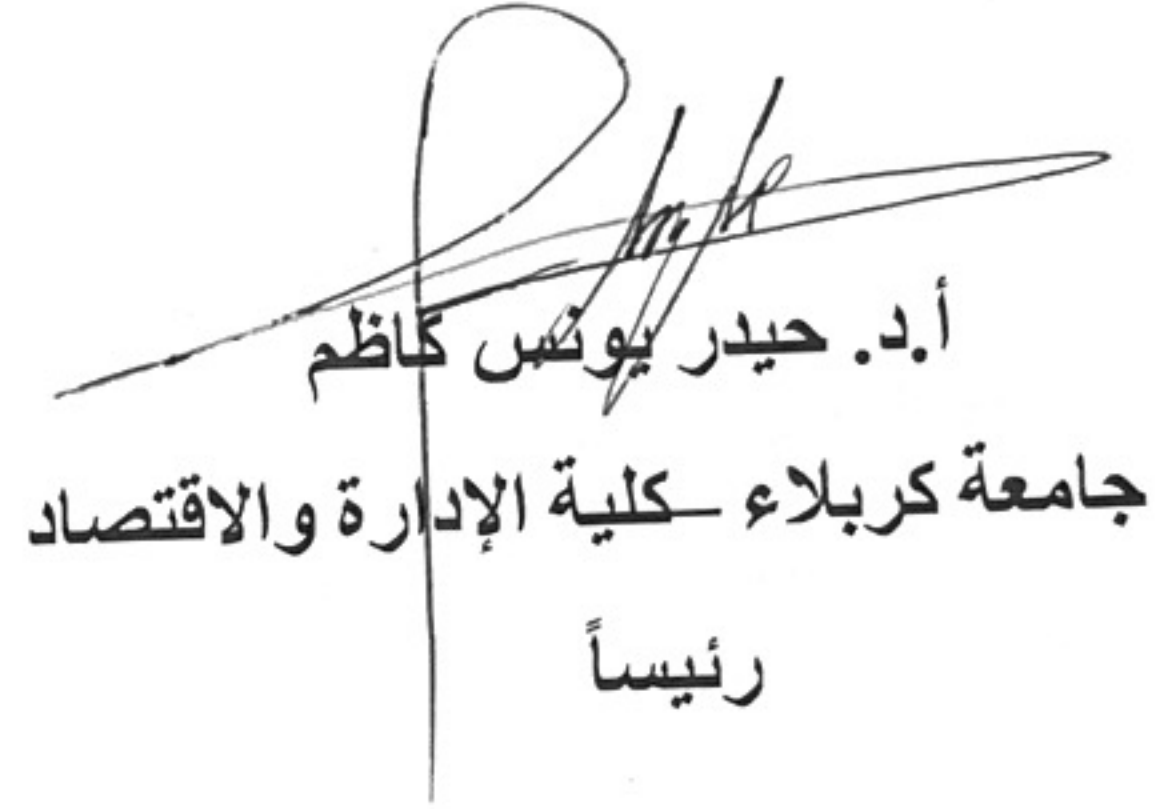 أ.د. حيدر يونس كاظم
جامعة كربلاء – كلية الإدارة والاقتصاد
رئيساً